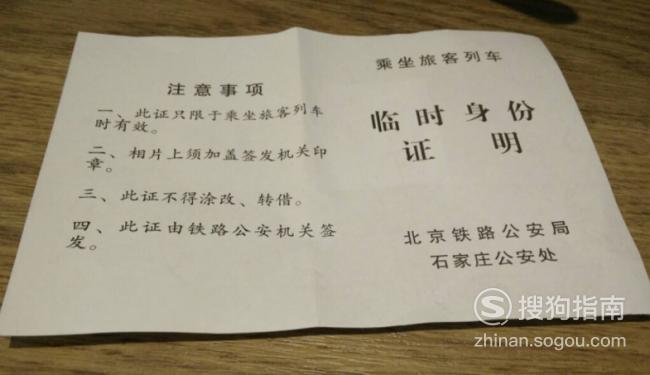 注意事项
一、此证只限于乘坐旅客列车
时有效。
二、相片上须加盖签发机关印
章。
三、此证不得涂改、转借。
四、此证由铁路公安机关签
发。
乘坐旅客列车
临时身份
证明
北京铁路公安局
石家庄公安处
搜狗指南
zhinan.sogou.com